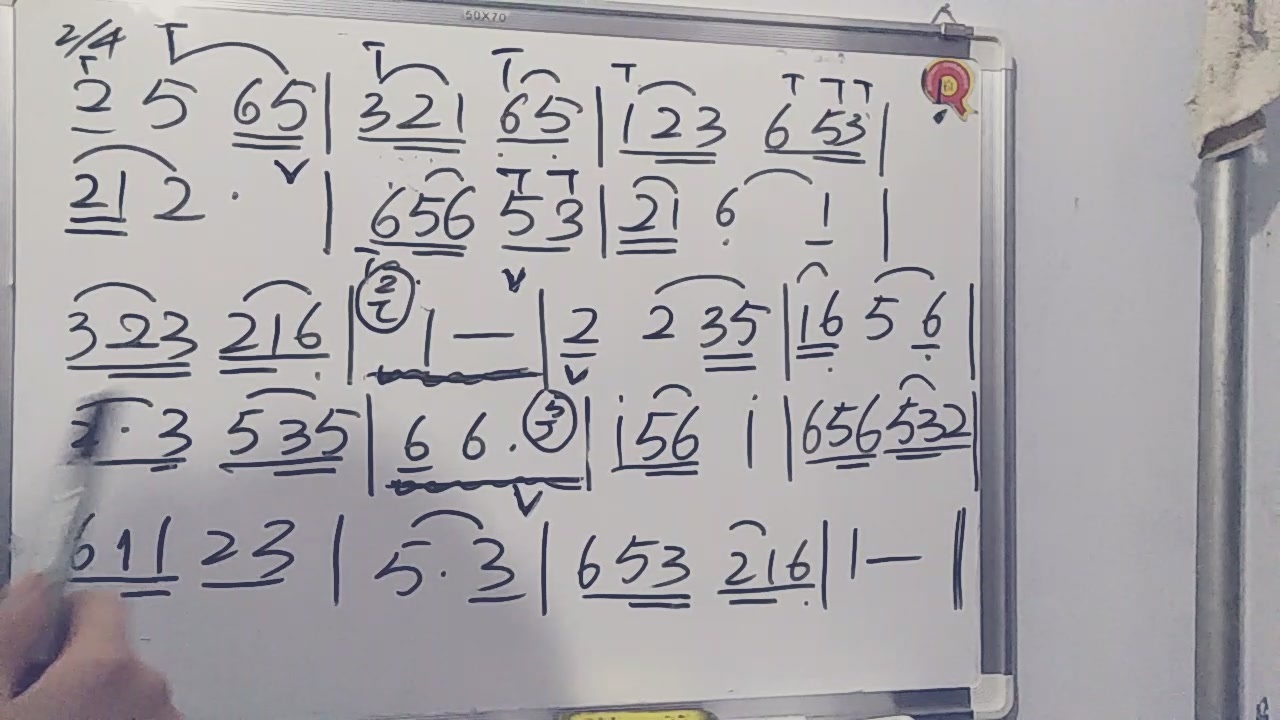 50X70
2/4
2 5 65 | 321 65 | 123 653 |
21 2 · | 656 53 | 21 6 1 |
323 216 | 1 — | 2 2 35 | 16 5 6 |
2·3 535 | 6 6. | i56 i | 656 532 |
611 23 | 5·3 | 653 216 | 1 — ||